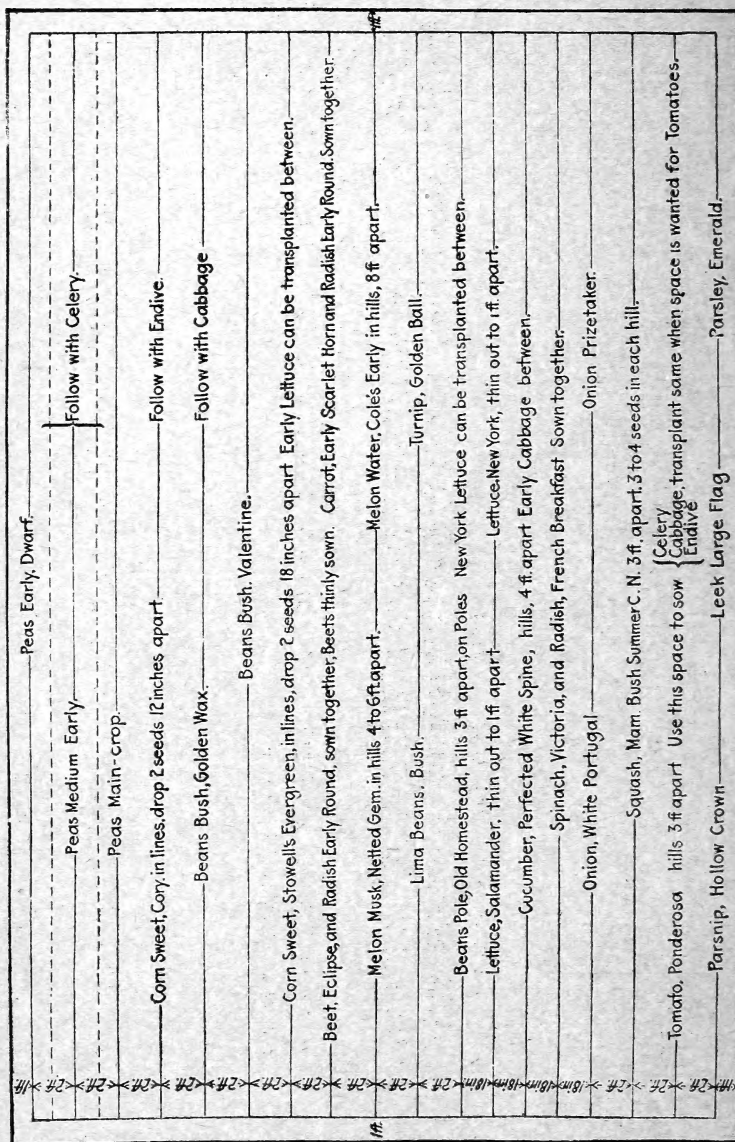 Peas Early, Dwarf.
Peas Medium Early. Follow with Celery.
Peas Main-crop.
Corn Sweet, Cory. in lines, drop 2 seeds 12 inches apart Follow with Endive.
Beans Bush, Golden Wax. Follow with Cabbage
Beans Bush. Valentine.
Corn Sweet, Stowell's Evergreen, in lines, drop 2 seeds 18 inches apart Early Lettuce can be transplanted between.
Beet, Eclipse, and Radish Early Round, sown together, Beets thinly sown. Carrot, Early Scarlet Horn and Radish Early Round. Sown together.
Melon Musk, Netted Gem. in hills 4 to 6 ft. apart. Melon Water, Cole's Early in hills, 8 ft apart.
Lima Beans. Bush. Turnip, Golden Ball.
Beans Pole, Old Homestead, hills 3 ft apart, on Poles New York Lettuce can be transplanted between.
Lettuce, Salamander, thin out to 1 ft apart Lettuce. New York, thin out to 1 ft. apart.
Cucumber, Perfected White Spine, hills, 4 ft. apart Early Cabbage between.
Spinach, Victoria, and Radish, French Breakfast Sown together.
Onion, White Portugal Onion Prizetaker.
Squash, Mam. Bush Summer C. N. 3 ft. apart. 3 to 4 seeds in each hill.
Tomato, Ponderosa hills 3 ft apart Use this space to sow { Celery Cabbage, Endive transplant same when space is wanted for Tomatoes.
Parsnip, Hollow Crown Leek Large Flag Parsley, Emerald.
1ft. 2ft. 2ft. 2ft. 2ft. 2ft. 2ft. 2ft. 2ft. 2ft. 2ft. 18in. 18in. 18in. 18in. 2ft. 2ft. 2ft. 1ft.
1ft.